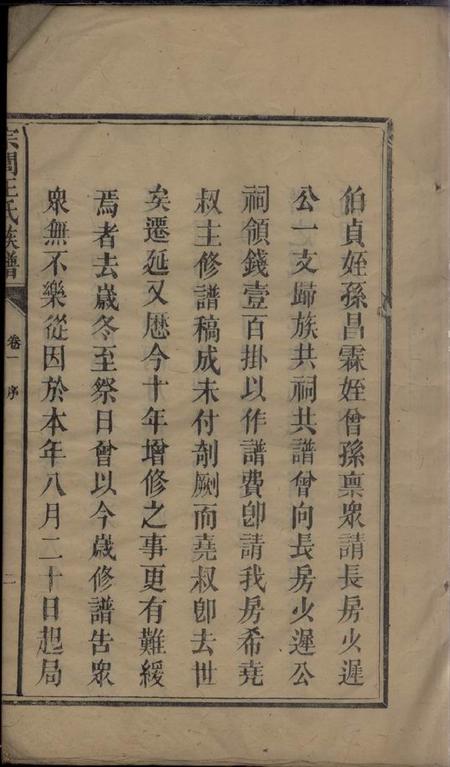 伯貞姪孫昌霖姪曾孫稟衆請長房火遲
公一支歸族共祠共譜曾向長房火遲公
祠領錢壹百掛以作譜費卽請我房希堯
叔主修譜稿成未付剞劂而堯叔卽去世
矣遷延又歷今十年增修之事更有難緩
焉者去歲冬至祭日曾以今歲修譜告衆
衆無不樂從因於本年八月二十日起局
王氏族譜
卷一
序